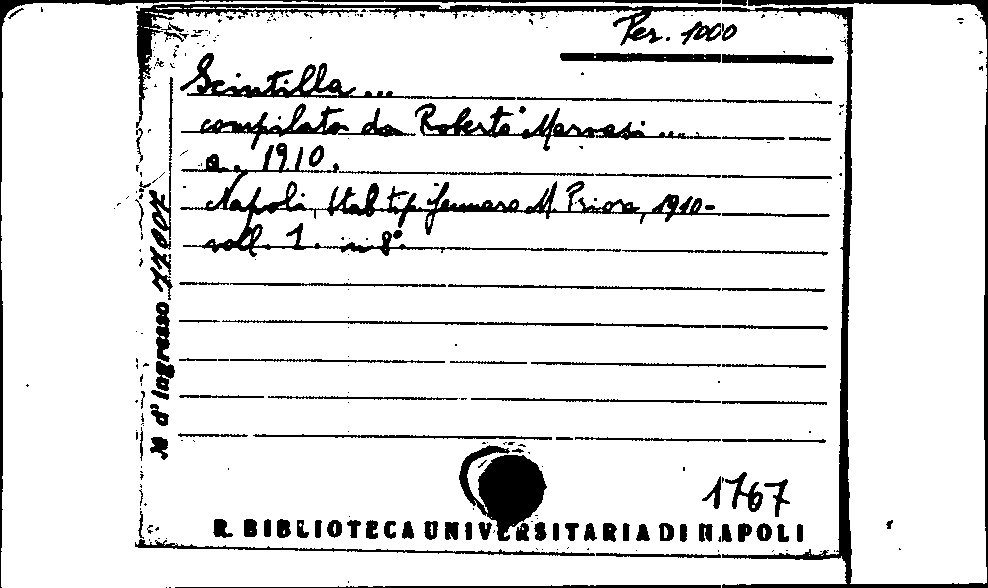 Per. 1000
Scintilla ...
compilata da Roberto Marvasi ...
a. 1910.
Napoli, Stab. tip. Gennaro M. Priore, 1910-
voll. 1. in 8°.
N. d'ingresso 70077
1767
R. BIBLIOTECA UNIVERSITARIA DI NAPOLI